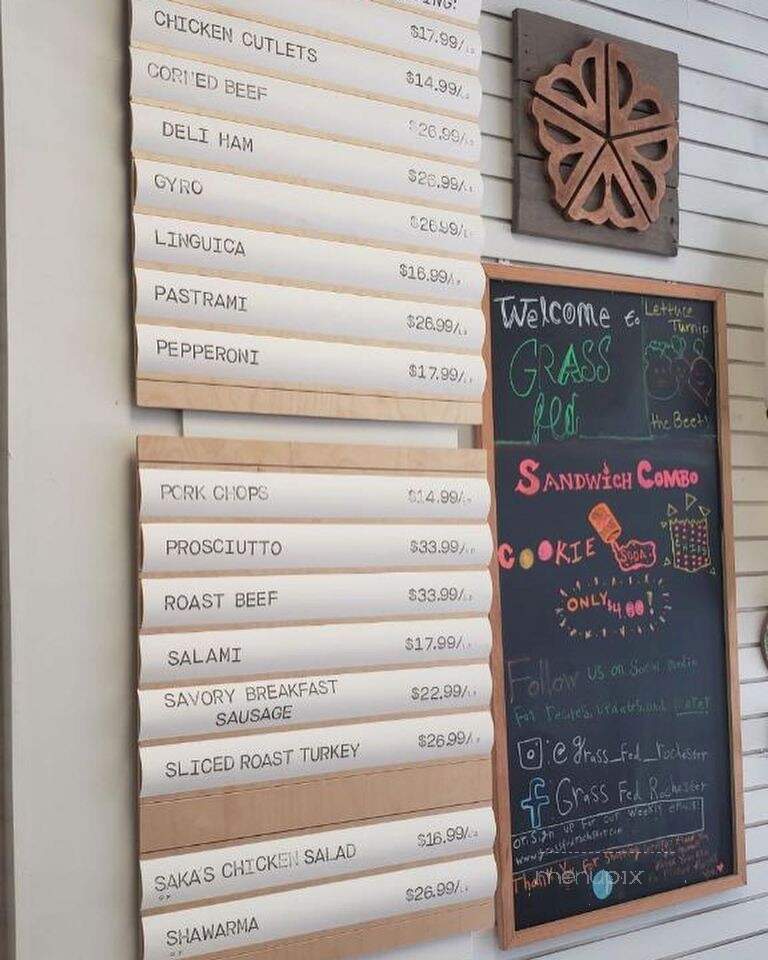 ING!
$17.99/LB
CHICKEN CUTLETS $14.99/LB
CORNED BEEF $26.99/LB
DELI HAM $26.99/LB
GYRO $26.99/LB
LINGUICA $16.99/LB
PASTRAMI $26.99/LB
PEPPERONI $17.99/LB
PORK CHOPS $14.99/LB
PROSCIUTTO $33.99/LB
ROAST BEEF $33.99/LB
SALAMI $17.99/LB
SAVORY BREAKFAST $22.99/LB
SAUSAGE
SLICED ROAST TURKEY $26.99/LB
SAKA'S CHICKEN SALAD $16.99/LB
SHAWARMA $26.99/LB
Welcome to
GRASS
fed
Lettuce
Turnip
the Beet!
SANDWICH COMBO
COOKIE
SODA
CHIPS
ONLY $4.00!
Follow us on social media
For recipes, updates, and
@grass_fed_rochester
Grass Fed Rochester
or sign up for our weekly emails!
Thank You for
menupix